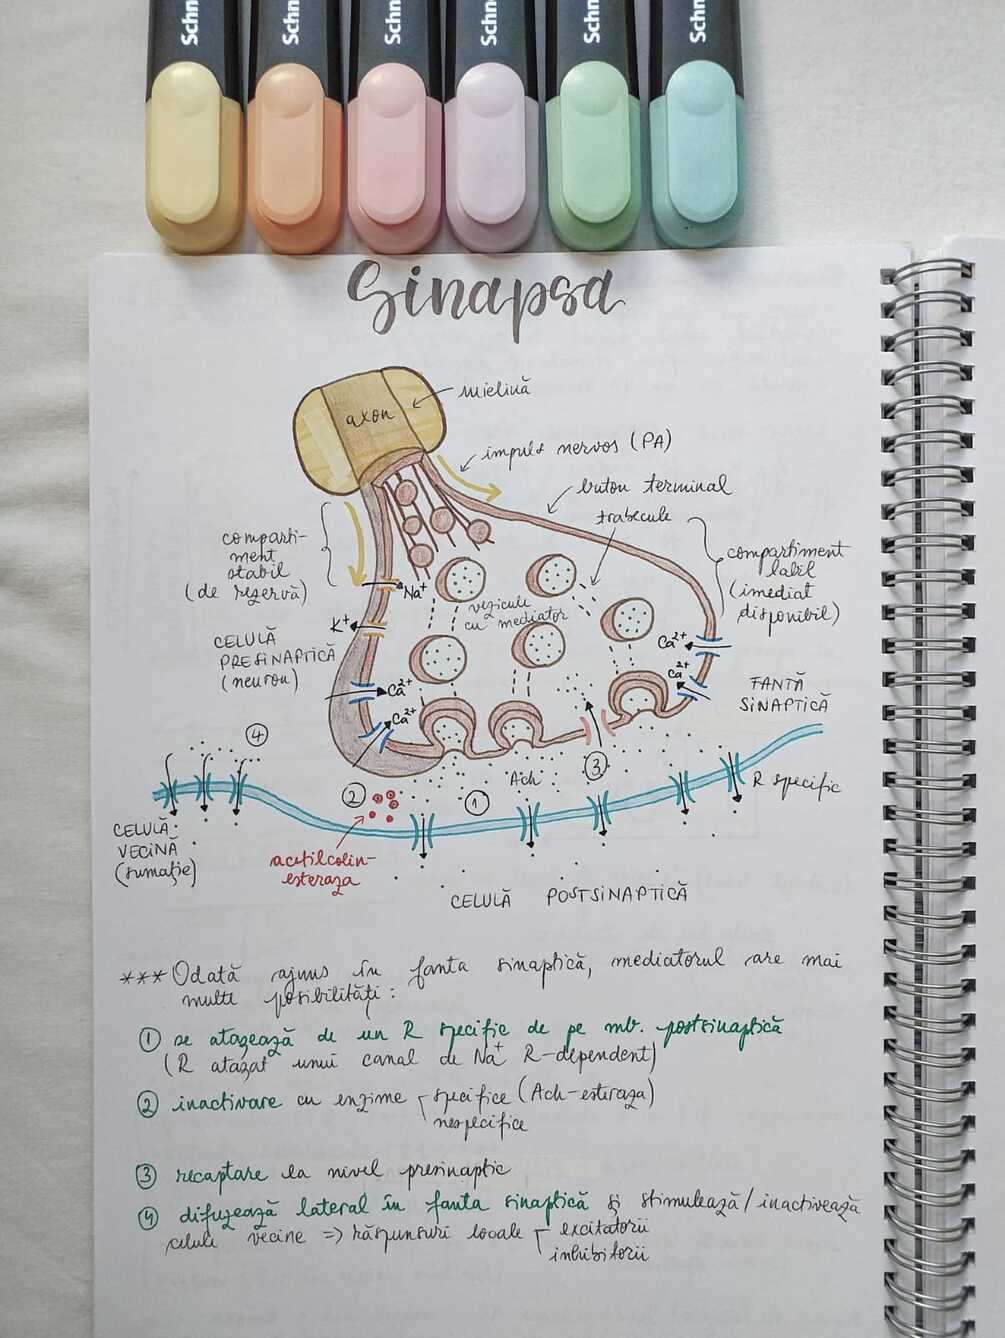 Schn
Schn
Schn
Schn
Schn
Schn
Sinapsa
axon
mielină
impuls nervos (PA)
buton terminal
trabecule
comparti-
ment
stabil
(de rezervă)
compartiment
labil
(imediat
disponibil)
Na+
vezicule
cu mediator
K+
Ca2+
Ca2+
CELULĂ
PRESINAPTICĂ
(neuron)
Ca2+
Ca2+
FANTĂ
SINAPTICĂ
4
Ach
3
2
1
R specific
CELULĂ
VECINĂ
(sumație)
acetilcolin-
esteraza
CELULĂ POSTSINAPTICĂ
*** Odată ajuns în fanta sinaptică, mediatorul are mai
multe posibilități:
1 se atașează de un R specific de pe mb. postsinaptică
(R atașat unui canal de Na+ R-dependent)
2 inactivare cu enzime specifice (Ach-esteraza)
nespecifice
3 recaptare la nivel presinaptic
4 difuzează lateral în fanta sinaptică și stimulează/inactivează
celule vecine => răspunsuri locale excitatorii
inhibitorii